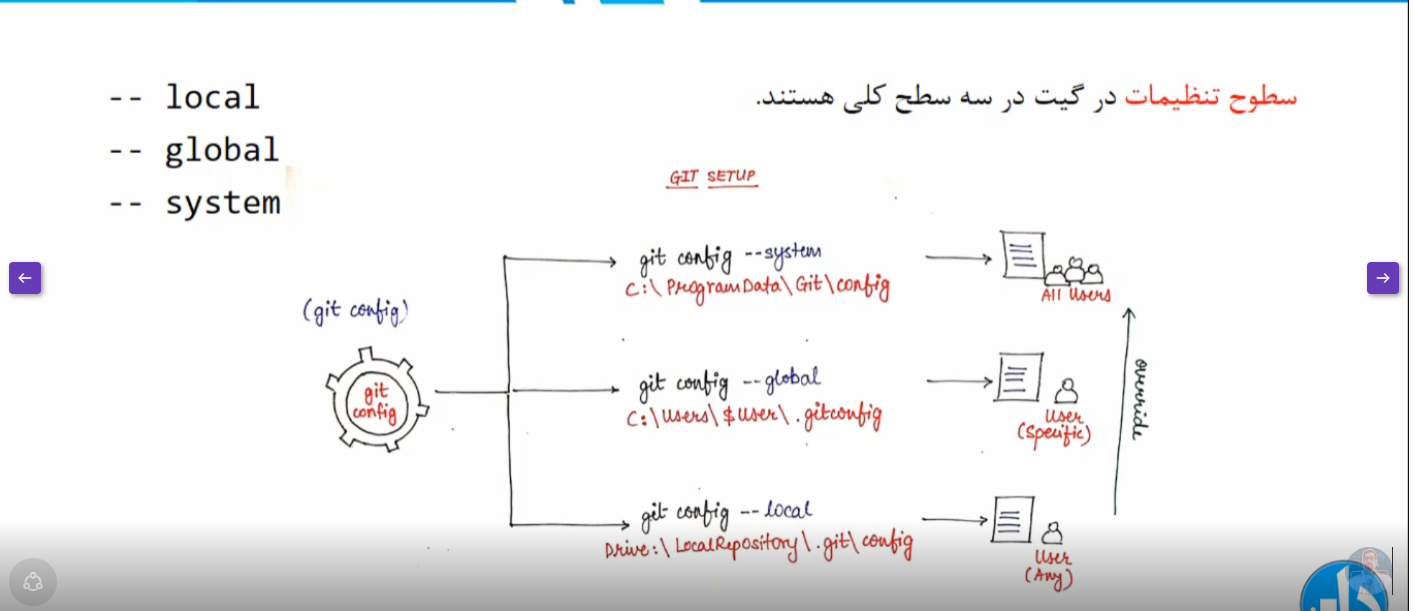 سطوح تنظیمات در گیت در سه سطح کلی هستند.
-- local
-- global
-- system
GIT SETUP
(git config)
git config
git config --system
C:\ProgramData\Git\config
All Users
git config --global
C:\Users\$user\.gitconfig
User
(Specific)
git config --local
Drive:\LocalRepository\.git\config
User
(Any)
override